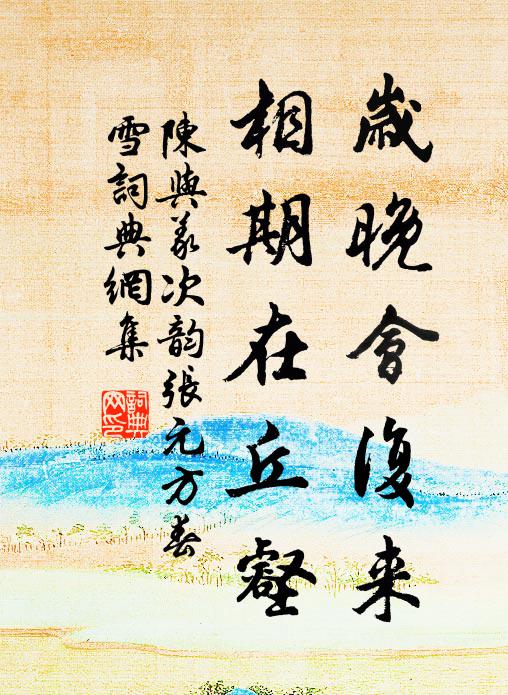 歲晚會復来
相期在丘壑
陳與義次韵張元方春
雪詞典網集
詞典
网印